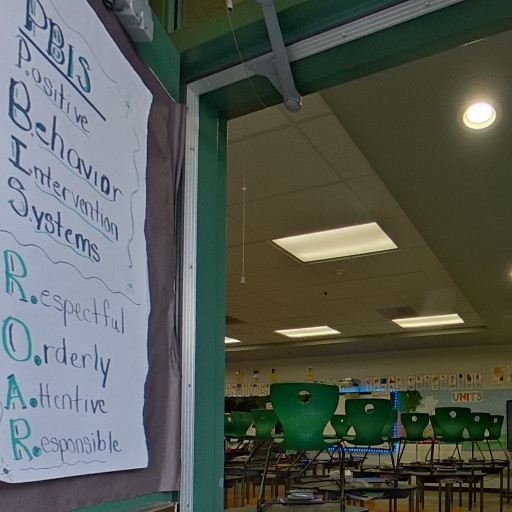 PBIS
Positive
Behavior
Intervention
Systems
R.espectful
O.rderly
A.ttentive
R.esponsible
UNIT 3